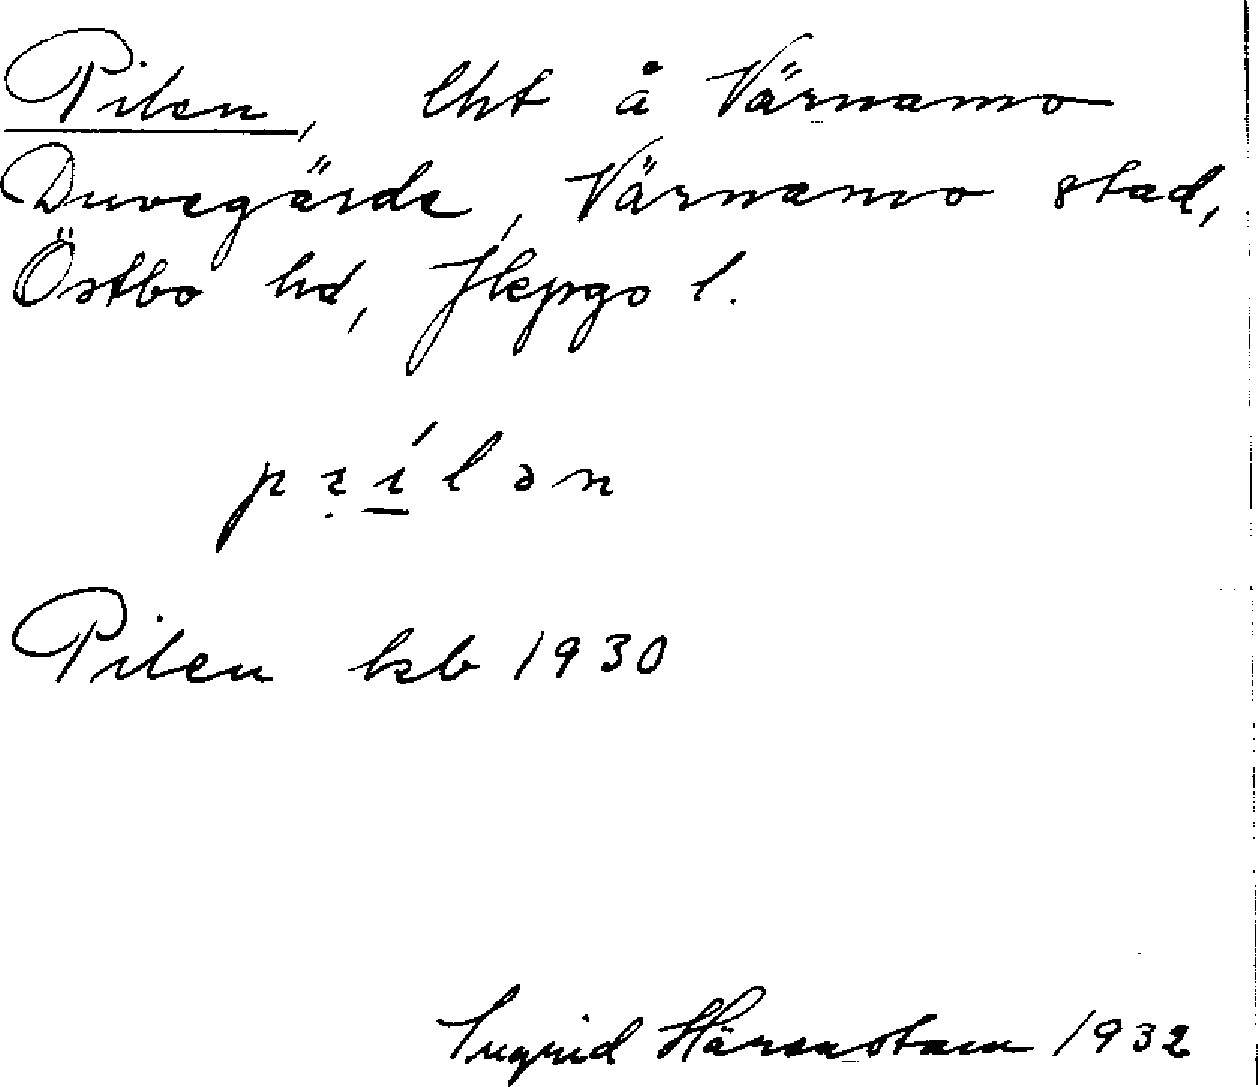 Pilen, lht å Värnamo
Duvegärde, Värnamo stad,
Östbo hd, Jkpgo l.
Pilen kb 1930
Ingrid Härenstam 1932